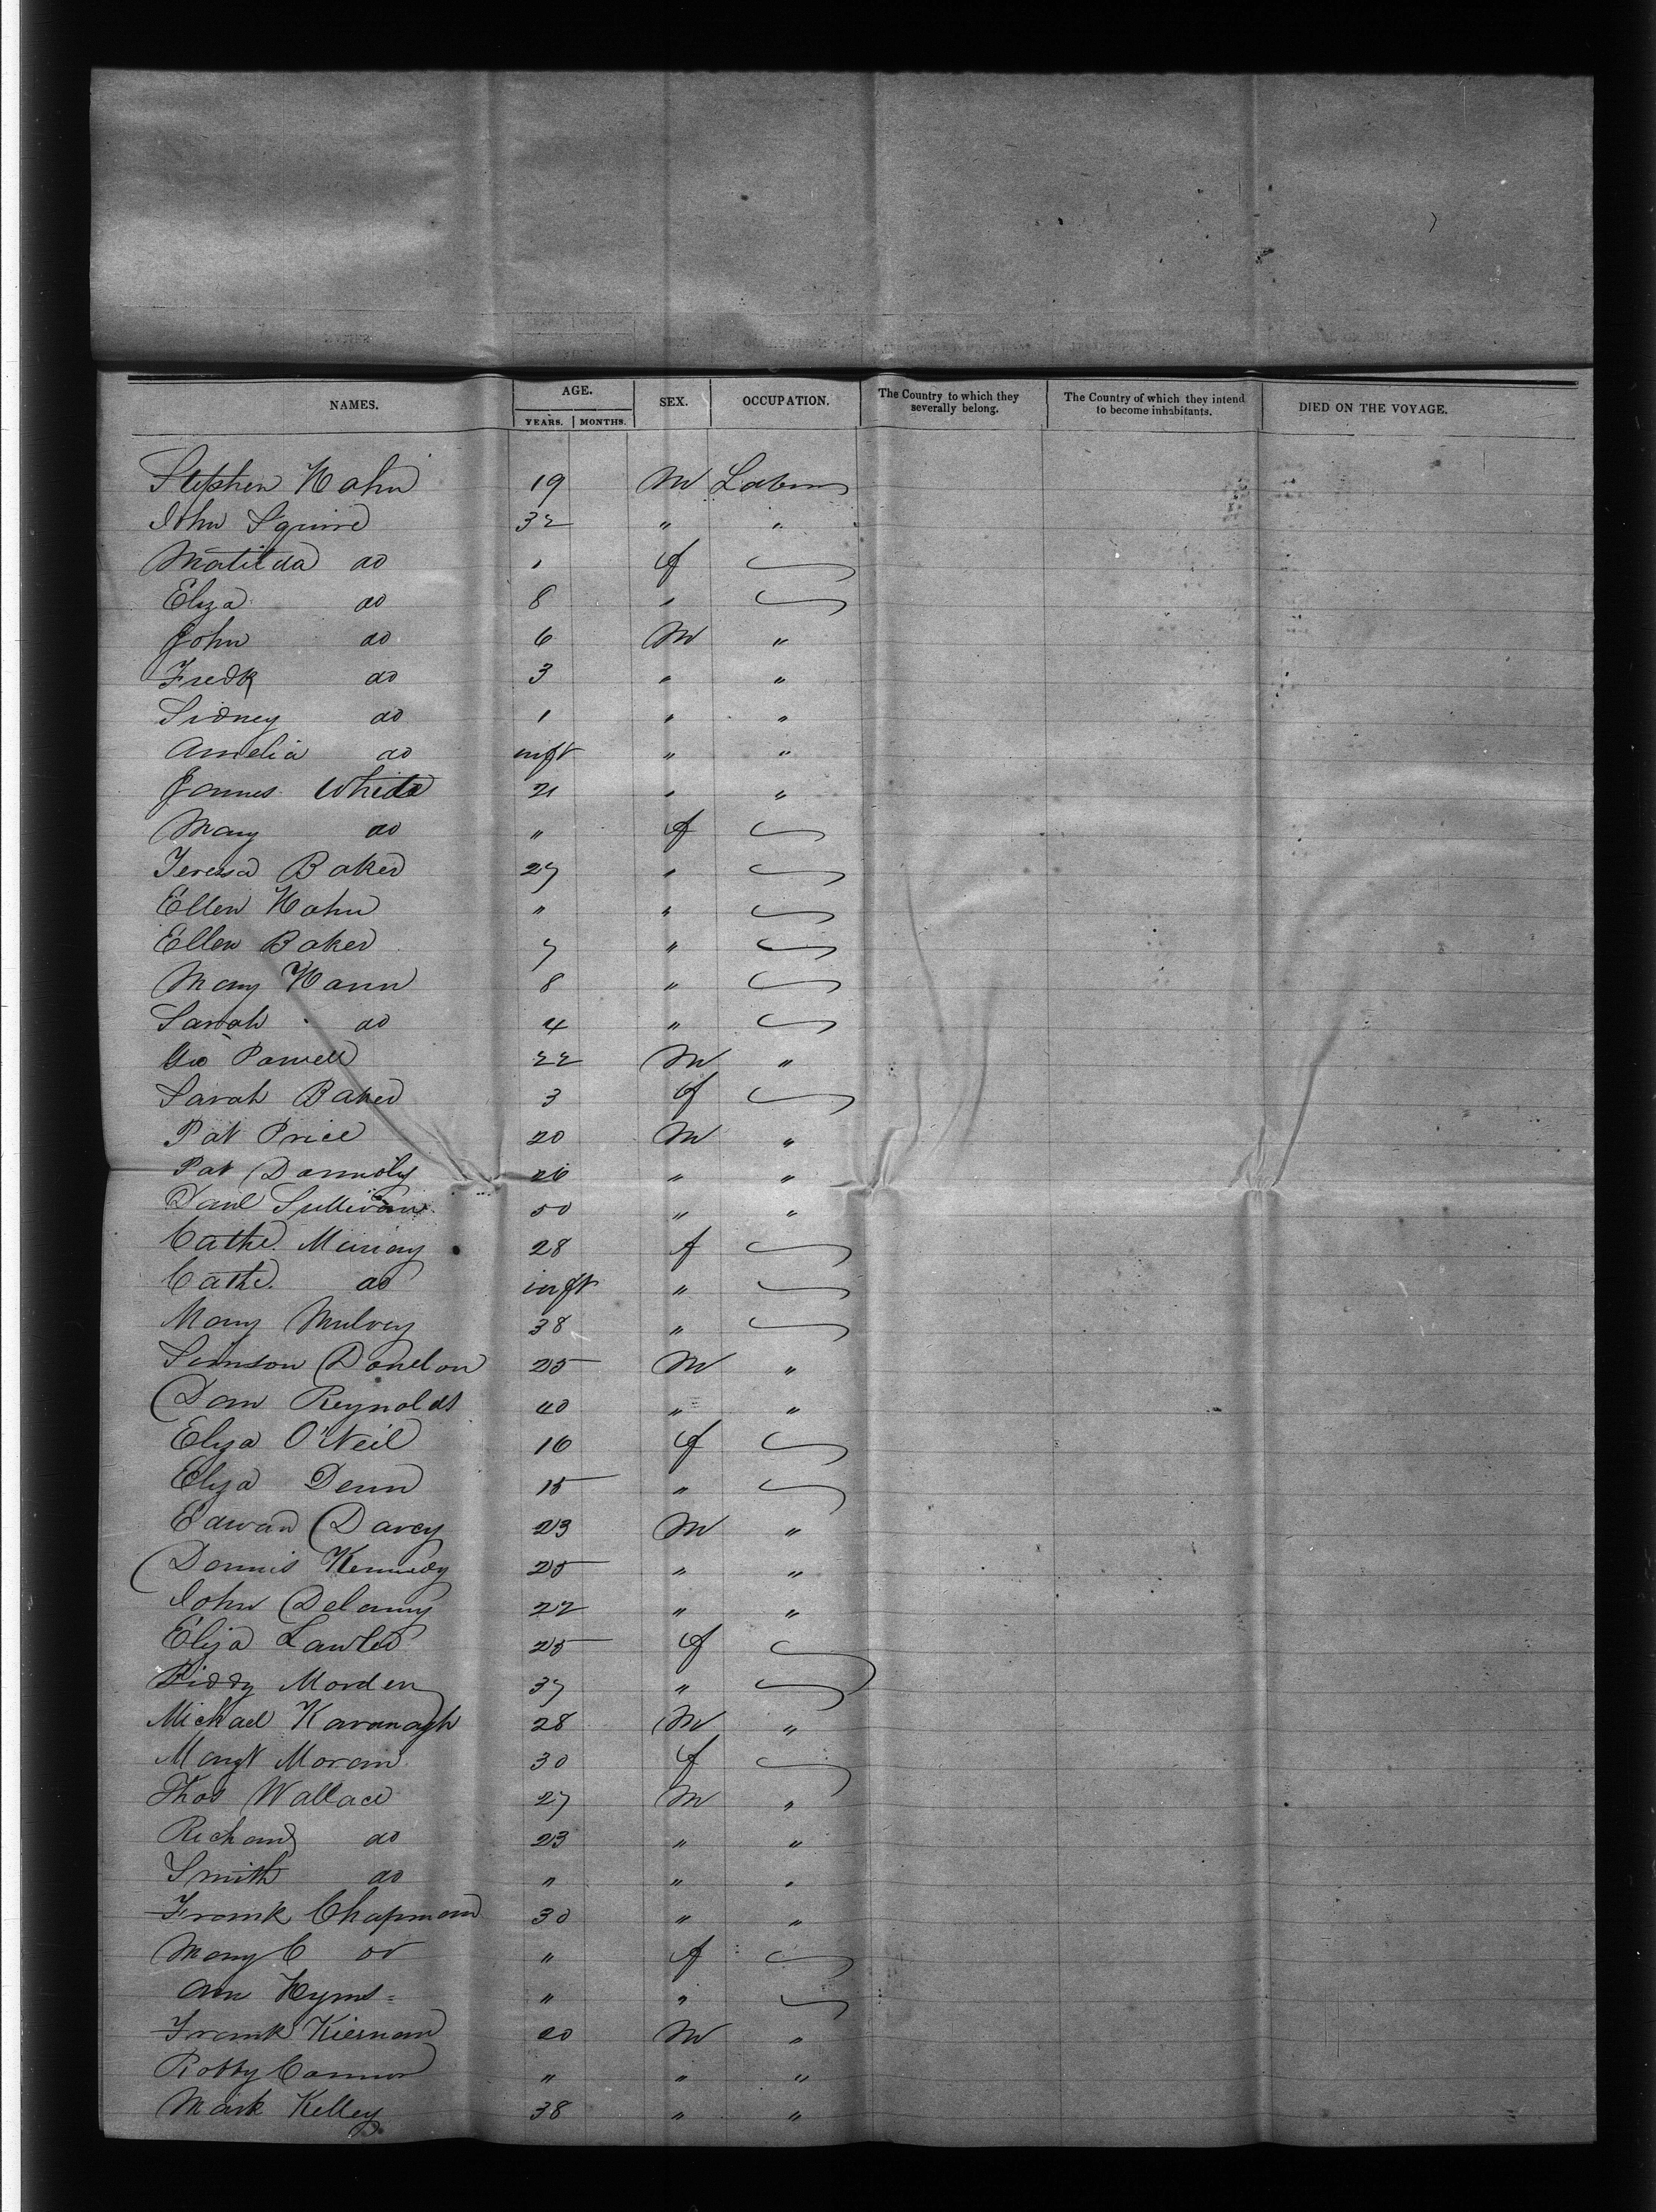 NAMES. AGE. YEARS. MONTHS. SEX. OCCUPATION. The Country to which they severally belong. The Country of which they intend to become inhabitants. DIED ON THE VOYAGE.
Stephen Hahn 19 M Labor
John Squire 32 " "
Matilda do " f
Eliza do 8 "
John do 6 M "
Fredk do 3 " "
Sidney do 1 " "
Amelia do inft " "
James White 21 " "
Mary do " f
Teresa Baker 27 "
Ellen Hahn " "
Ellen Baker 7 "
Mary Hann 8 "
Sarah do 4 "
Geo Powell 22 M "
Sarah Baker 3 f
Pat Price 20 M "
Pat Donnoly 26 " "
Danl Sullivan 50 " "
Cathe. Murray 28 f
Cathe. do inft "
Mary Mulvey 38 "
Simson Donelon 25 M "
Dan Reynolds 40 " "
Eliza O'Neil 16 f
Eliza Denn 15 "
Edward Davey 23 M "
Dennis Kennedy 25 " "
John Delanny 22 " "
Eliza Lawler 25 f
Biddy Morden 37 "
Michael Kavanagh 28 M "
Margt Moran 30 f
Thos Wallace 27 M "
Richard do 23 " "
Smith do " " "
Frank Chapman 30 " "
Mary C do " f
Ann Hyms " "
Frank Kiernan 20 M "
Robby Connor " " "
Mark Kelley 38 " "